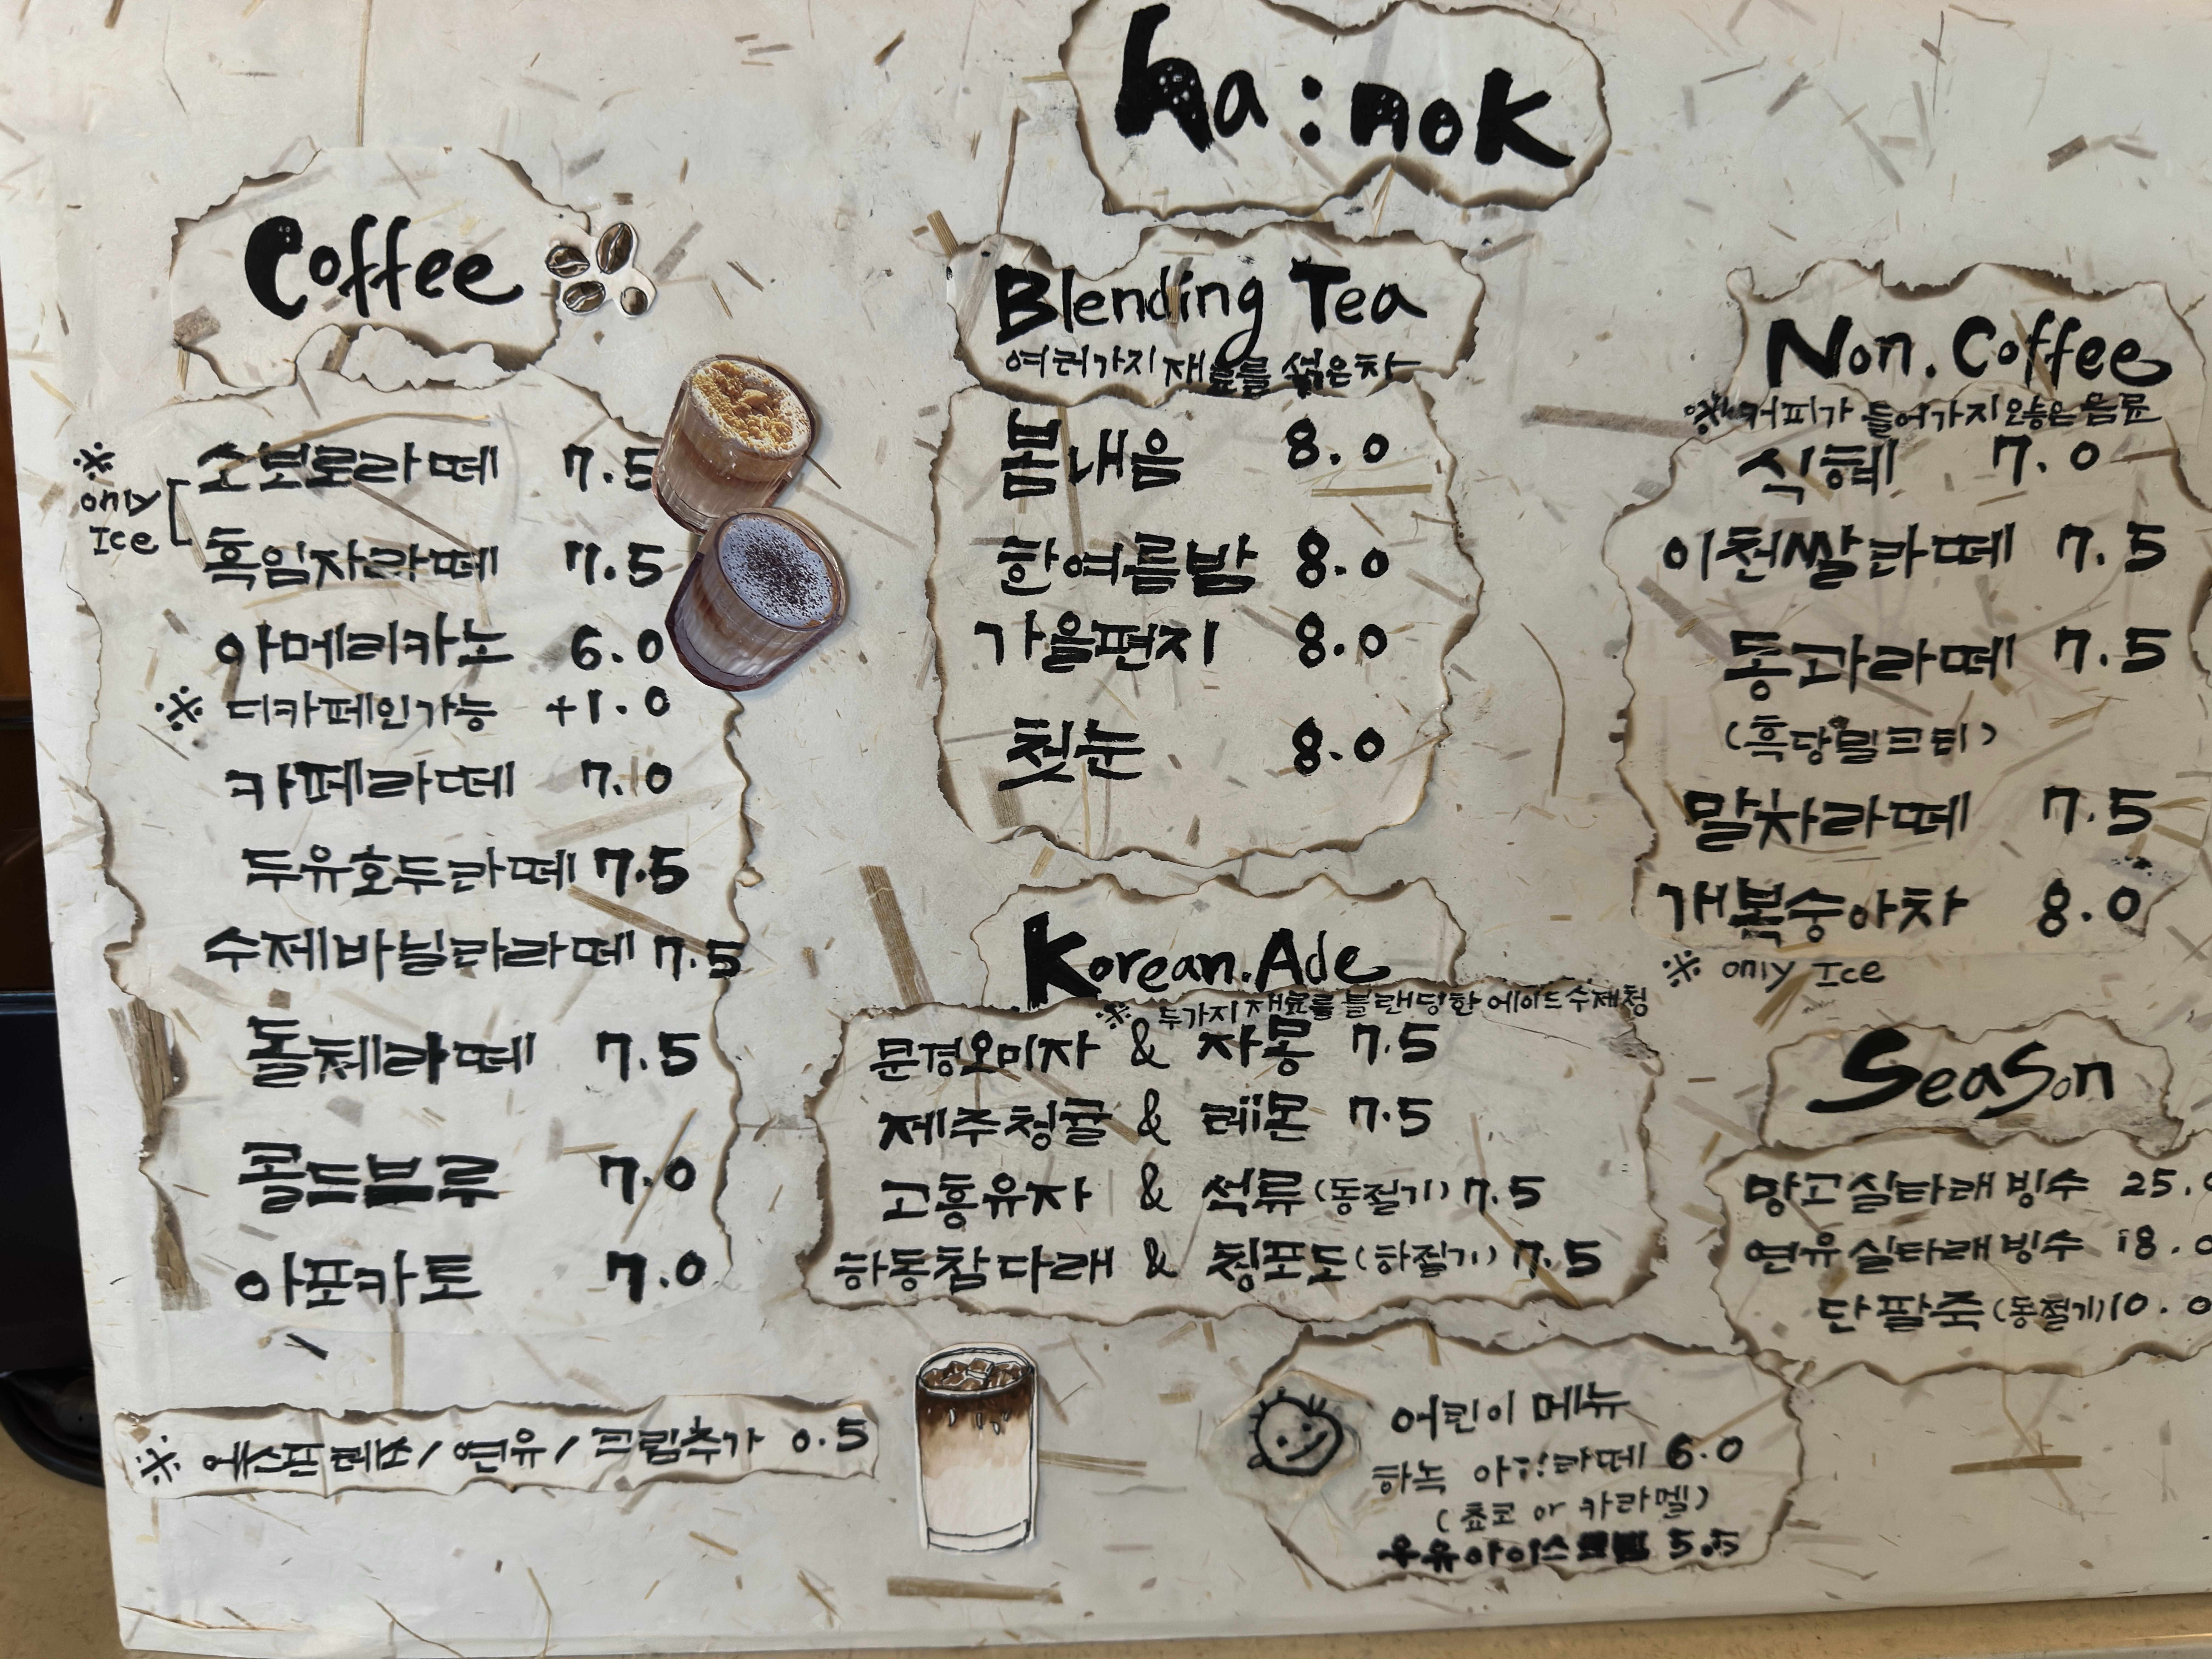 ha:nok
Coffee
※ only Ice
소보로라떼 7.5
흑임자라떼 7.5
아메리카노 6.0
※ 디카페인가능 +1.0
카페라떼 7.0
두유호두라떼 7.5
수제바닐라라떼 7.5
돌체라떼 7.5
콜드브루 7.0
아포카토 7.0
※ 에스프레소/연유/크림추가 0.5
Blending Tea
여러가지 재료를 섞은차
봄내음 8.0
한여름밤 8.0
가을편지 8.0
첫눈 8.0
Korean.Ade
※ 두가지재료를 블랜딩한 에이드수제청
문경오미자 & 자몽 7.5
제주청귤 & 레몬 7.5
고흥유자 & 석류(동절기) 7.5
하동참다래 & 청포도(하절기) 7.5
Non.Coffee
※ 커피가 들어가지않은음료
식혜 7.0
이천쌀라떼 7.5
동과라떼 7.5
(흑당밀크티)
말차라떼 7.5
개복숭아차 8.0
※ only Ice
Season
망고실타래빙수 25.0
연유실타래빙수 18.0
단팥죽(동절기) 10.0
어린이 메뉴
하녹 라떼 6.0
(쵸코 or 카라멜)
우유아이스크림 5.5